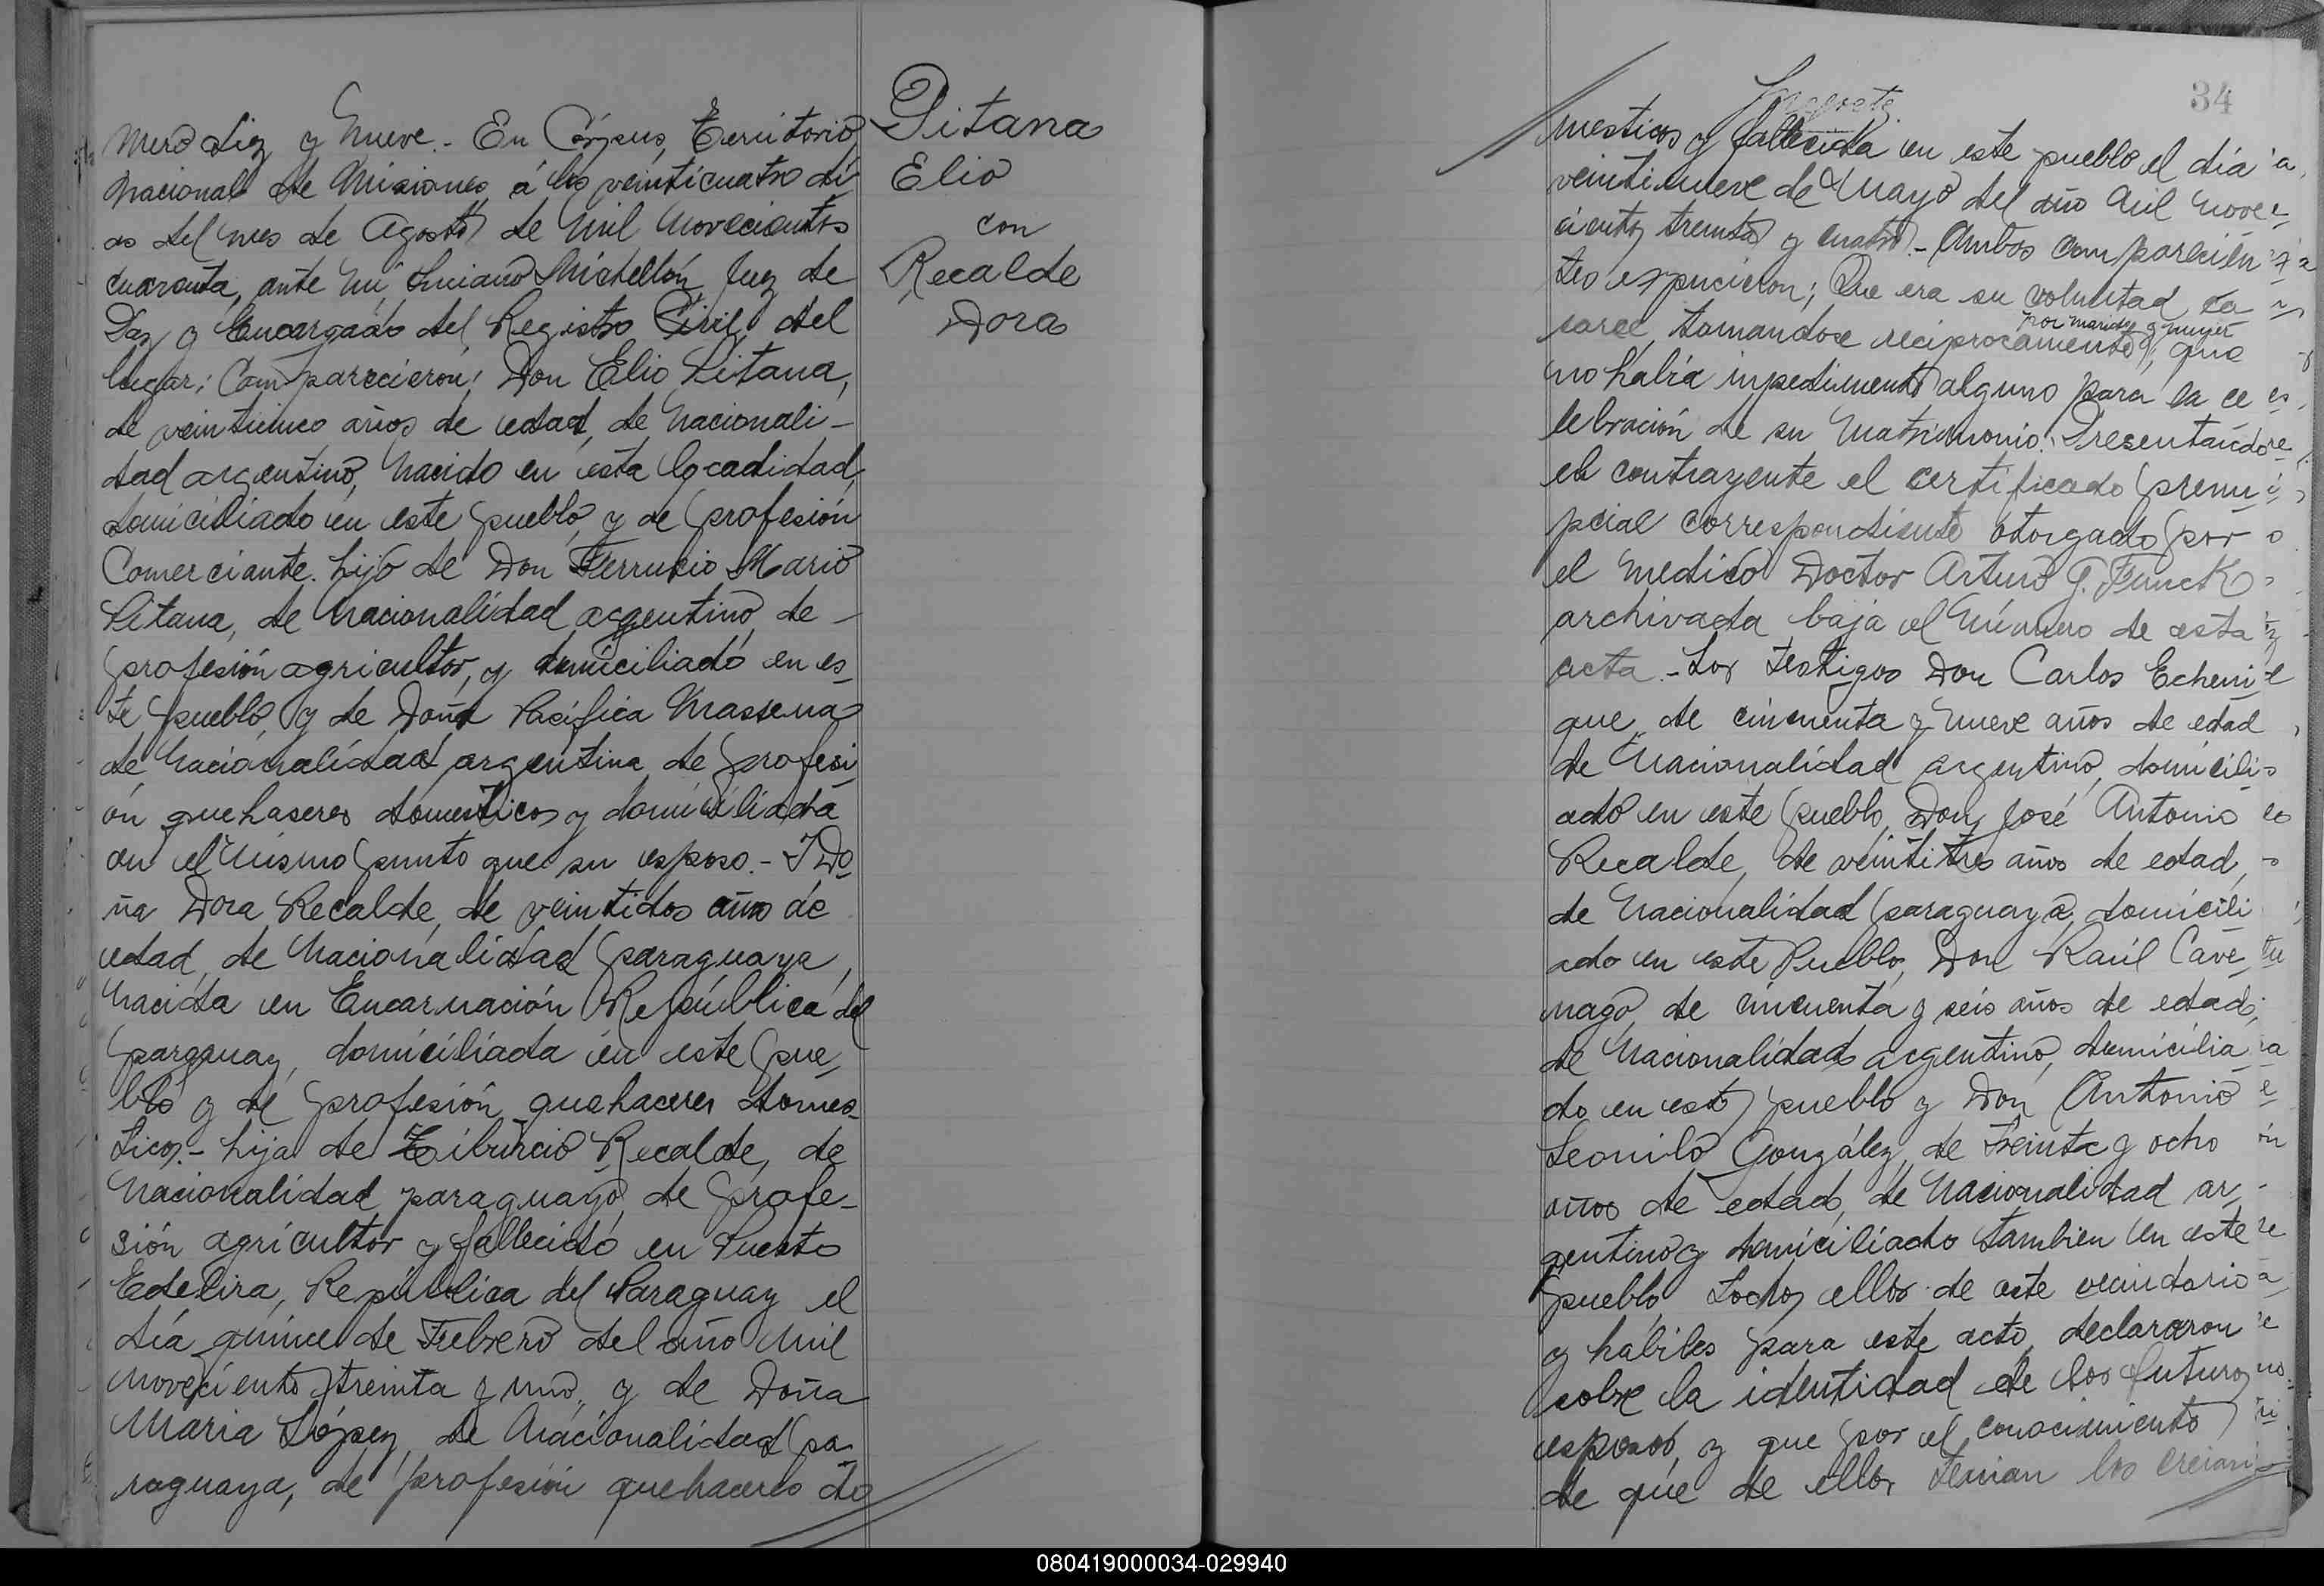 Mero diez y Nueve.- En Córpus, Territorio
Nacional de Misiones á los veinticuatro dí
as del mes de Agosto de Mil Novecientos
cuarenta, ante Mí Luciano Michellón Juez de
Paz y Encargado del Registro Civil del
lugar; Comparecieron: Don Elio Pitana,
de veinticinco años de edad, de Nacionali-
dad argentino, Nacido en esta locadidad,
domiciliado en este pueblo, y de profesión
Comerciante. hijo de Don Ferrucio Mario
Pitana, de Nacionalidad argentino, de
profesión agricultor, y domiciliado en es
te pueblo, y de Doña Pacífica Massena
de Nacionalidad argentina de profesi
ón quehaseres domesticos y domiciliada
en el Mismo punto que su esposo.- Y Do
ña Dora Recalde, de veintidos años de
edad, de Nacionalidad paraguaya,
Nacida en Encarnación República del
paraguay, domiciliada en este pue
blo y de profesión quehaceres domes
ticos.- hija de Tiburcio Recalde, de
Nacionalidad paraguayo, de profe-
sión agricultor y fallecido en Puesto
Edelira, República del Paraguay el
día quince de Febrero del año Mil
Novecientos treinta y uno, y de Doña
Maria López, de Nacionalidad pa
raguaya, de profesión quehaceres do
Pitana
Elio
con
Recalde
Dora
34
mesticos y fallecida en este pueblo el día
veintinueve de Mayo del año Mil nove
cientos treinta y cuatro.- Ambos comparecien
tes expucieron; Que era su voluntad ca
sarce, tomandose reciprocamente por marido y mujer, que
no habia inpedimento alguno para la ce
lebración de su Matrimonio. Presentando
el contrayente el certificado prenu
pcial correspondiente otorgado por
el Medico Doctor Arturo G. Funck
archivada baja el Número de esta
acta.- Los Testigos Don Carlos Echeni
que, de cincuenta y Nueve años de edad
de Nacionalidad argentino, domicili
ado en este pueblo, Don José Antonio
Recalde, de veintitres años de edad,
de Nacionalidad paraguaya, domicili
ado en este Pueblo, Don Raúl Cave
nago, de cincuenta y seis años de edad,
de Nacionalidad argentino, domicilia
do en este pueblo y Don Antonio
Leonilo González, de Treinta y ocho
años de edad, de Nacionalidad ar
gentino y domiciliado tambien en este
pueblo, todos ellos de este vecindario
y hábiles para este acto, declararon
sobre la identidad de los futuros
esposos, y que por el conocimiento
de que de ellos tenian los creian
080419000034-029940